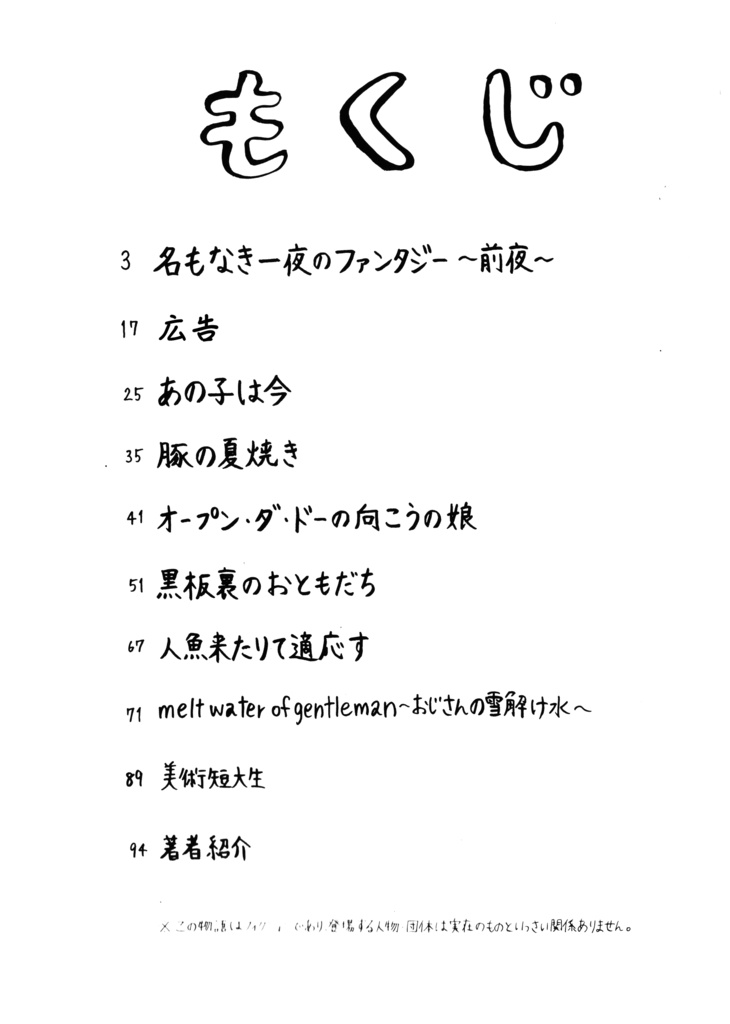 もくじ
3 名もなき一夜のファンタジー〜前夜〜
17 広告
25 あの子は今
35 豚の夏焼き
41 オープン・ダ・ドーの向こうの娘
51 黒板裏のおともだち
67 人魚来たりて適応す
71 melt water of gentleman〜おじさんの雪解け水〜
89 美術短大生
94 著者紹介
※この物語はフィクションであり、登場する人物・団体は実在のものといっさい関係ありません。